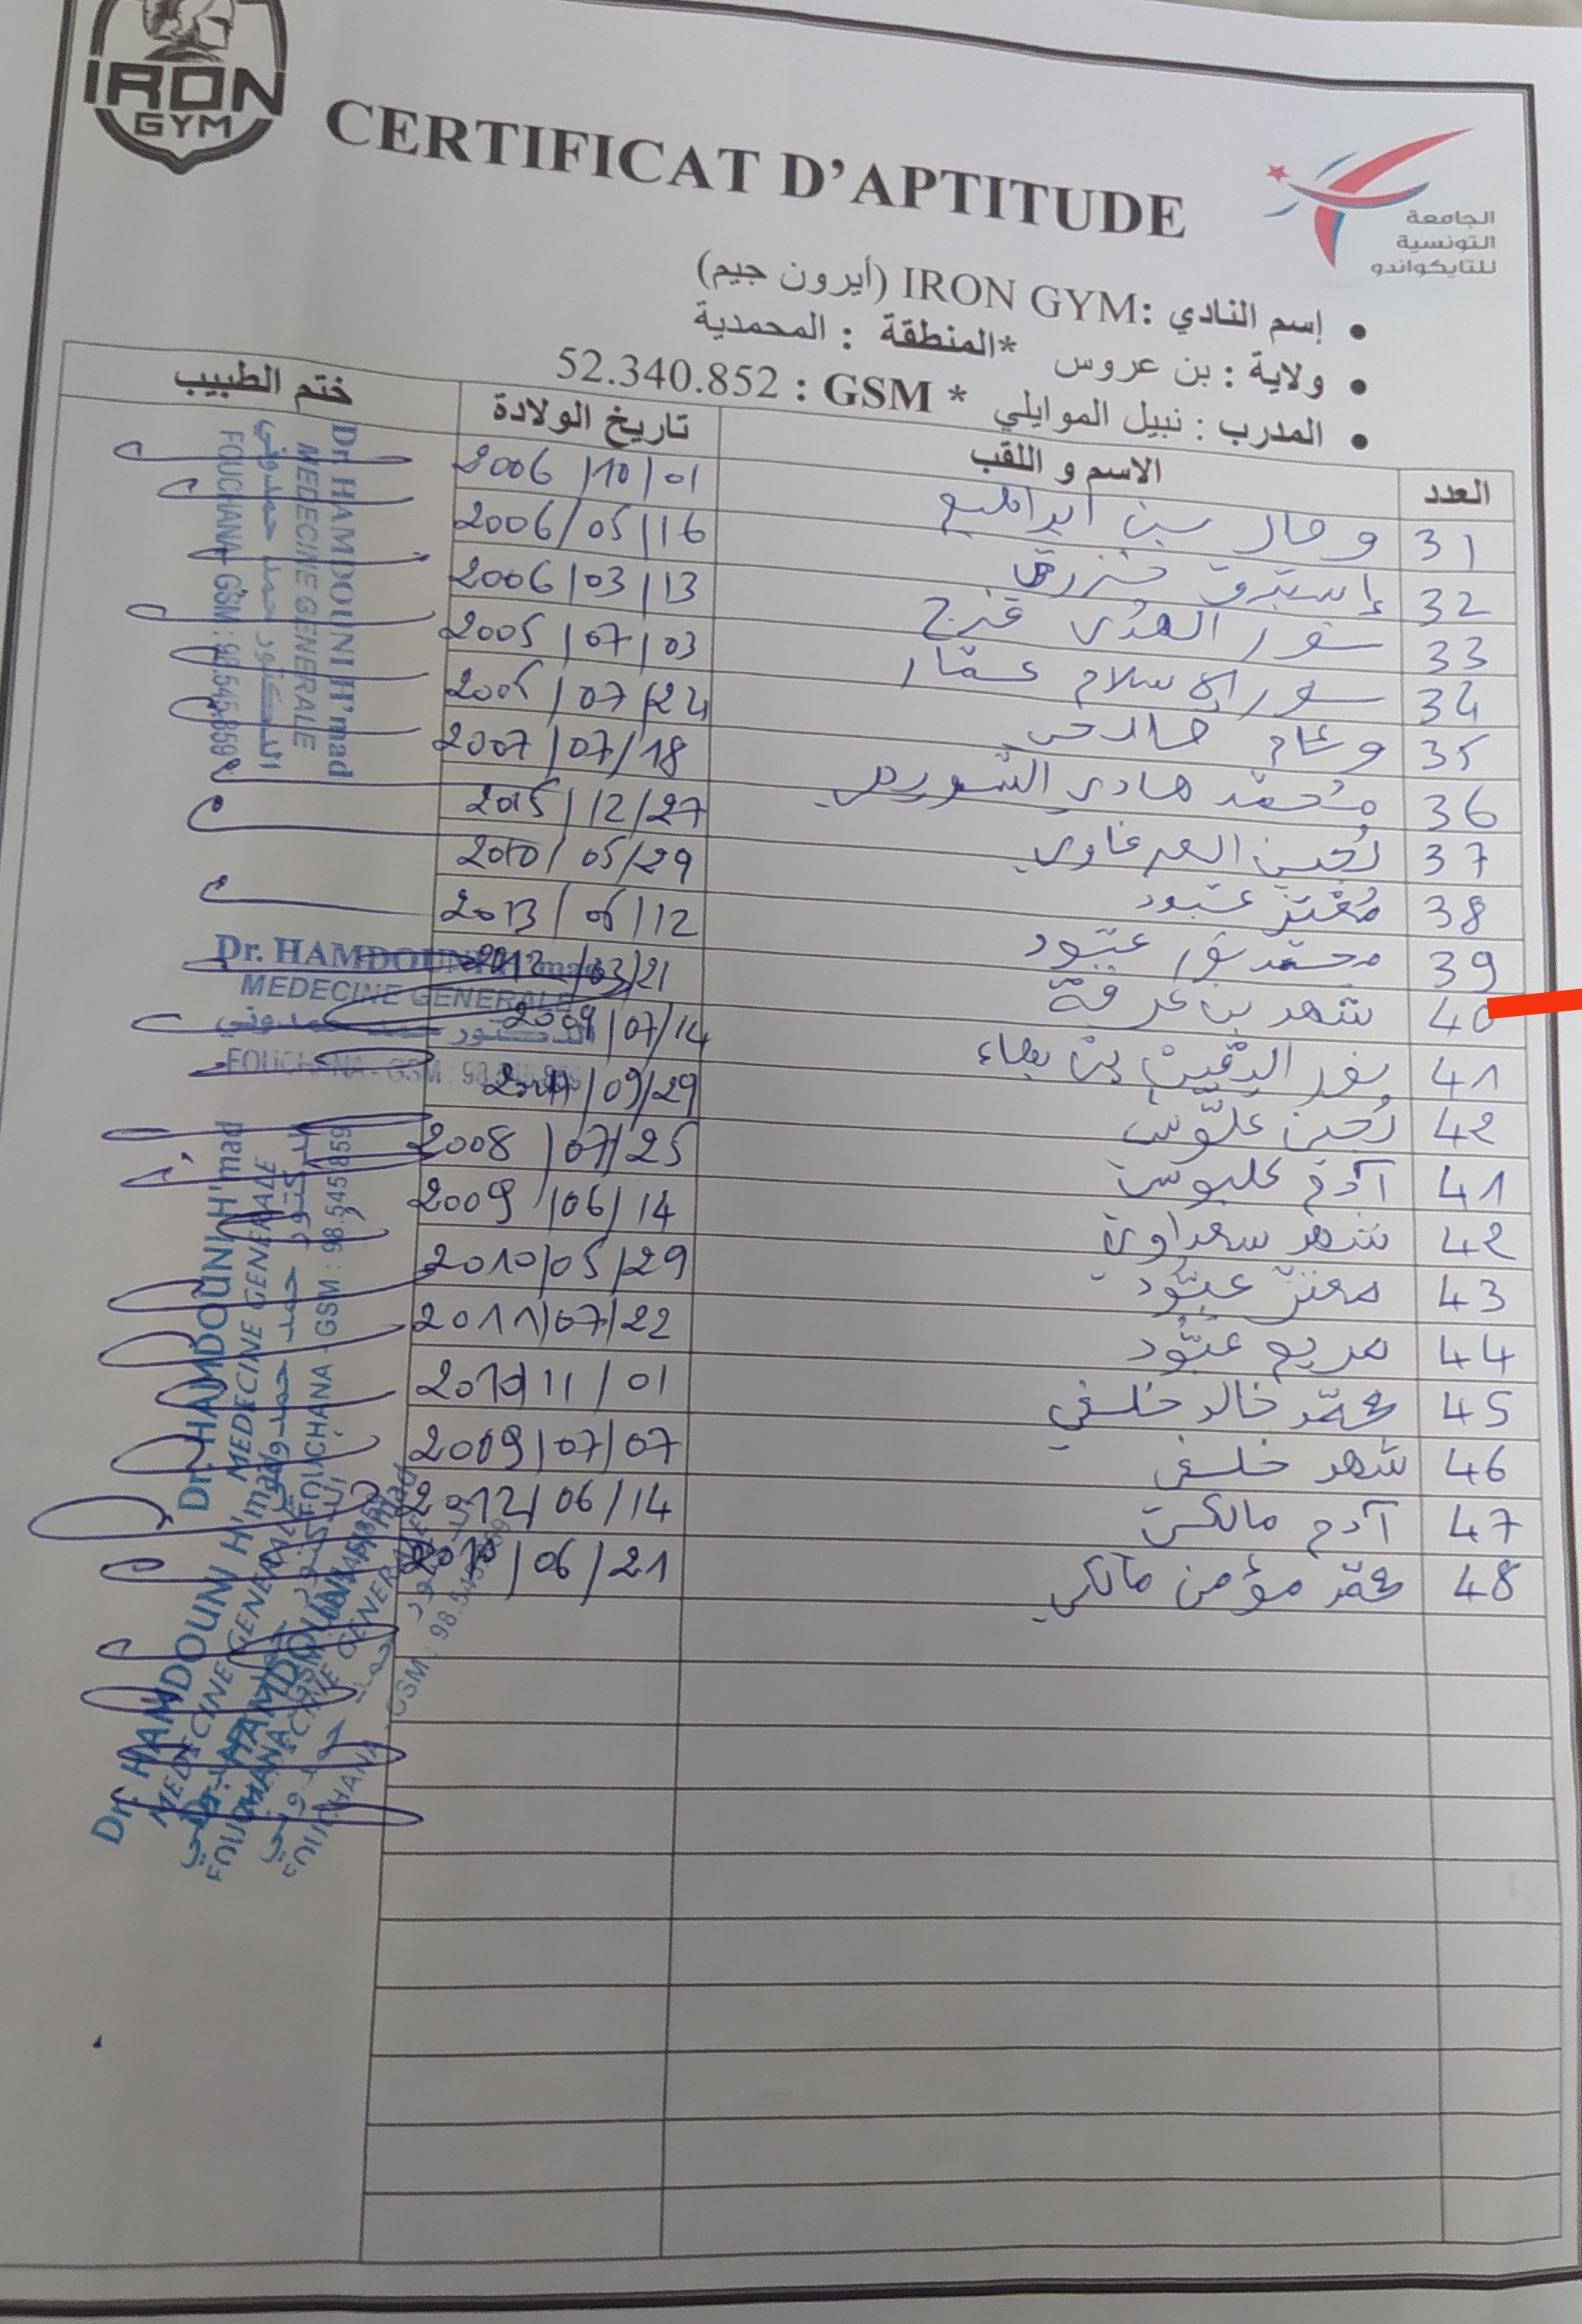 IRON
GYM
CERTIFICAT D'APTITUDE
الجامعة
التونسية
للتايكواندو
إسم النادي :IRON GYM (أيرون جيم)
ولاية : بن عروس *المنطقة : المحمدية
المدرب : نبيل الموايلي * GSM : 52.340.852
العدد الاسم و اللقب تاريخ الولادة ختم الطبيب
31 بن ابراهيم 2006/10/01
32 إستبرق 2006/05/16
33 نور الهدى فرج 2006/03/13
34 نور الاسلام عمّار 2005/07/03
35 وئام 07/24
36 محمّد هادي 2007/07/18
37 لجين العرفاوي 2015/12/27
38 مُعْتز عبّود 2010/05/29
39 محمّد نور عبّود 2013/06/12
40 شهد بن عرفة 2012/03/21
41 نور اليقين بن 2009/07/14
42 لُجين علّوش 09/29
41 آدم 2008/07/25
42 شهد سعداوي 2009/06/14
43 معتز عبّود 2010/05/29
44 مريم عبّود 2011/07/22
45 محمّد خالد خلفي 2010/11/01
46 شهد خلفي 2009/07/07
47 آدم مالكي 2012/06/14
48 محمّد مؤمن مالكي 2010/06/21
Dr. HAMDOUNI H'mad
MEDECINE GENERALE
الدكتور حمد حمدوني
FOUCHANA - GSM : 98.545.859
Dr. HAMDOUNI H'mad
MEDECINE GENERALE
الدكتور حمد حمدوني
FOUCHANA - GSM : 98
Dr. HAMDOUNI H'mad
MEDECINE GENERALE
الدكتور حمد حمدوني
FOUCHANA - GSM : 98.545.859
Dr. HAMDOUNI H'mad
MEDECINE GENERALE